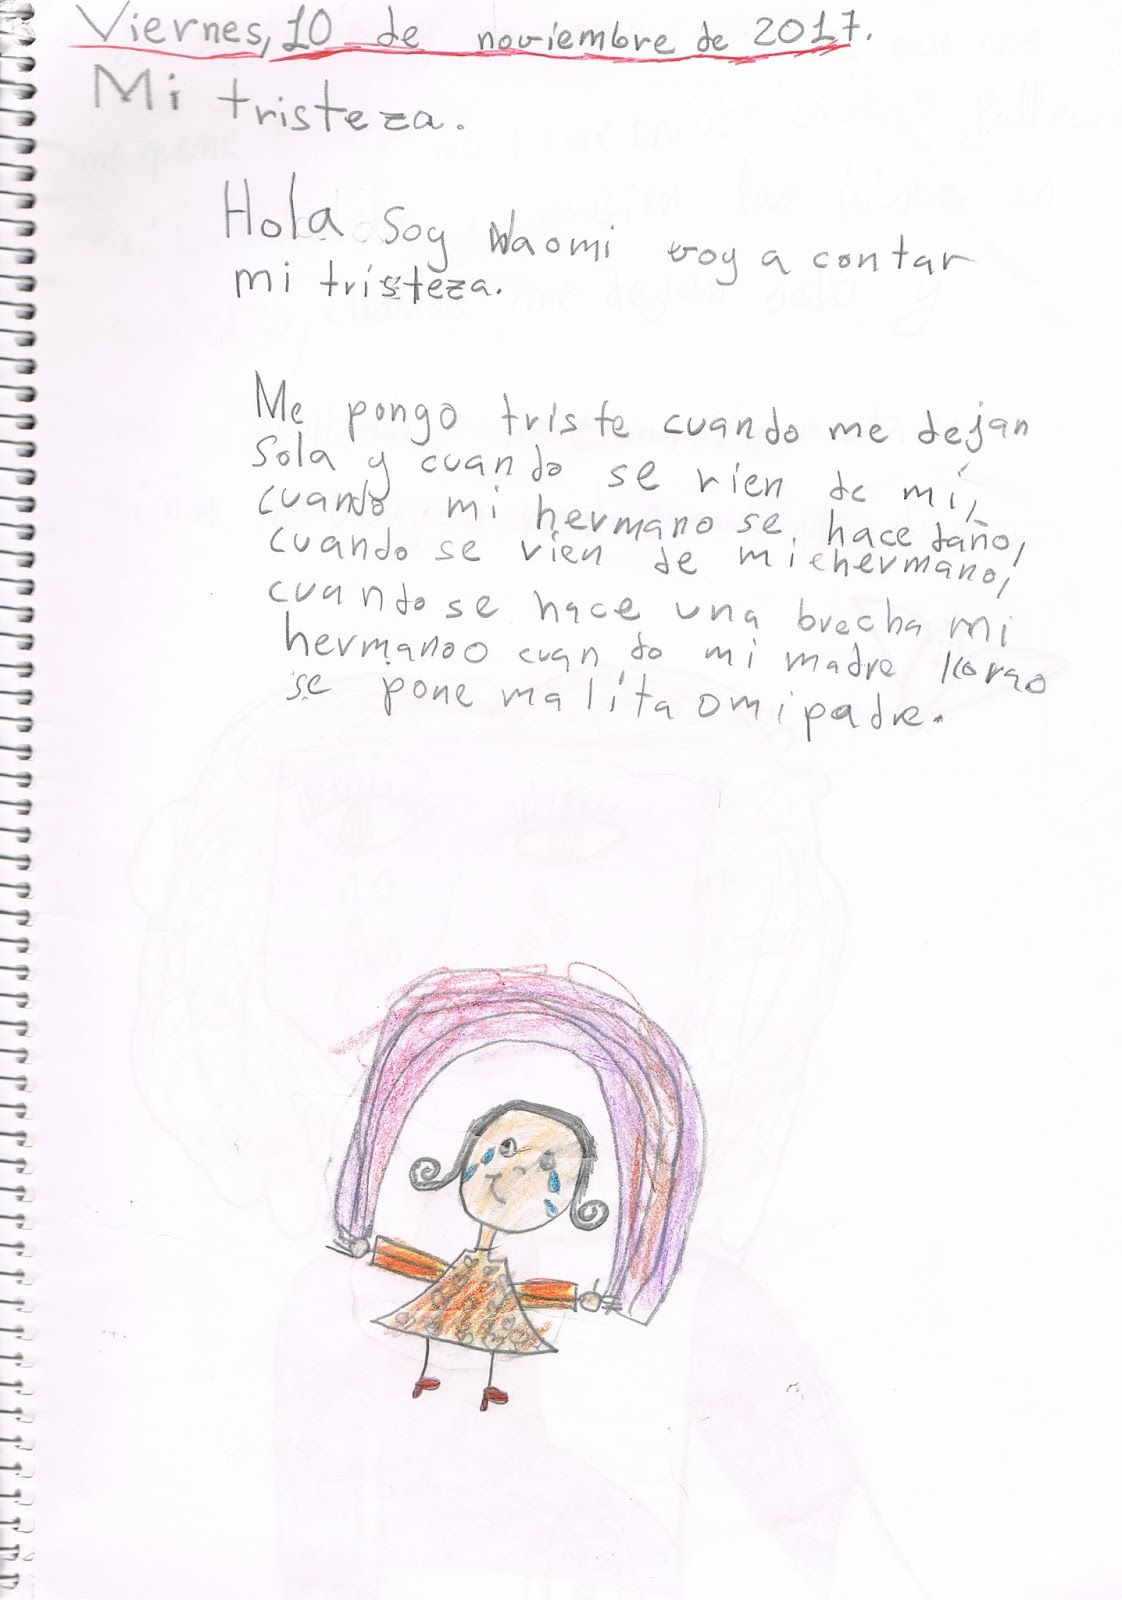 Viernes, 10 de noviembre de 2017.
Mi tristeza.
Hola Soy Naomi voy a contar
mi tristeza.
Me pongo triste cuando me dejan
Sola y cuando se rien de mí,
cuando mi hermano se hace daño,
cuando se rien de mi hermano,
cuando se hace una brecha mi
hermano o cuando mi madre
se pone malita o mi padre.